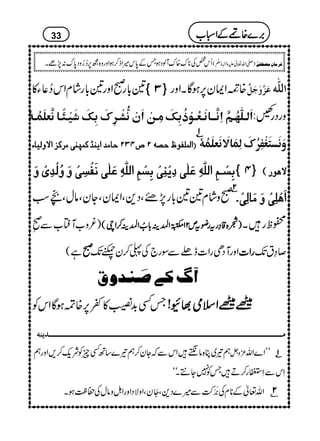 برے خاتمے کے اسباب 33
فرمانِ مصطفیٰ (صلی اللہ تعالیٰ علیہ واٰلہٖ وسلم) اُس شخص کی ناک خاک آلود ہو جس کے پاس میرا ذکر ہو اور وہ مجھ پر دُرُودِ پاک نہ پڑھے۔
اللّٰہ عَزَّوَجَلَّ خاتمہ ایمان پر ہوگا۔ اور {۳} تین بار صبح اور تین بار شام اس دُعا کا
وِرد رکھیں: اَللّٰهُمَّ اِنَّا نَعُوْذُبِکَ مِنْ اَنْ نُّشْرِکَ بِکَ شَیْئًا نَّعْلَمُهٗ
وَنَسْتَغْفِرُکَ لِمَا لَا نَعْلَمُهٗ ۱ (الملفوظ حصہ ۲ ص۲۳۴ حامد اینڈ کمپنی مرکز الاولیاء
لاھور) {۴} بِسْمِ اللّٰهِ عَلٰی دِیْنِیْ بِسْمِ اللّٰهِ عَلٰی نَفْسِیْ وَ وُلْدِیْ وَ
اَهْلِیْ وَ مَالِیْ۔ ۲ صبح و شام تین تین بار پڑھئے، دین، ایمان، جان، مال، بچّے، سب
محفوظ رہیں۔ (شجرہ قادریہ رضویہ ص۱۲ مکتبۃ المدینہ بابُ المدینہ کراچی) (غروبِ آفتاب سے صبحِ
صادِق تک رات اور آدھی رات ڈھلے سے سورج کی پہلی کرن چمکنے تک صبح ہے)
آگ کے صندوق
میٹھے میٹھے اسلامی بھائیو! جس کسی بدنصیب کا کفر پر خاتمہ ہوگا اس کو
مــدینه
۱ ’’اے اللہ عزوجل ہم تیری پناہ مانگتے ہیں اس سے کہ جان کر ہم تیرے ساتھ کسی چیز کو شریک کریں اور ہم
اس سے اِستِغفار کرتے ہیں جس کو نہیں جانتے۔‘‘
۲ اللہ تعالیٰ کے نام کی بَرَکت سے میرے دین، جان، اولاد اور اہل و مال کی حفاظت ہو۔